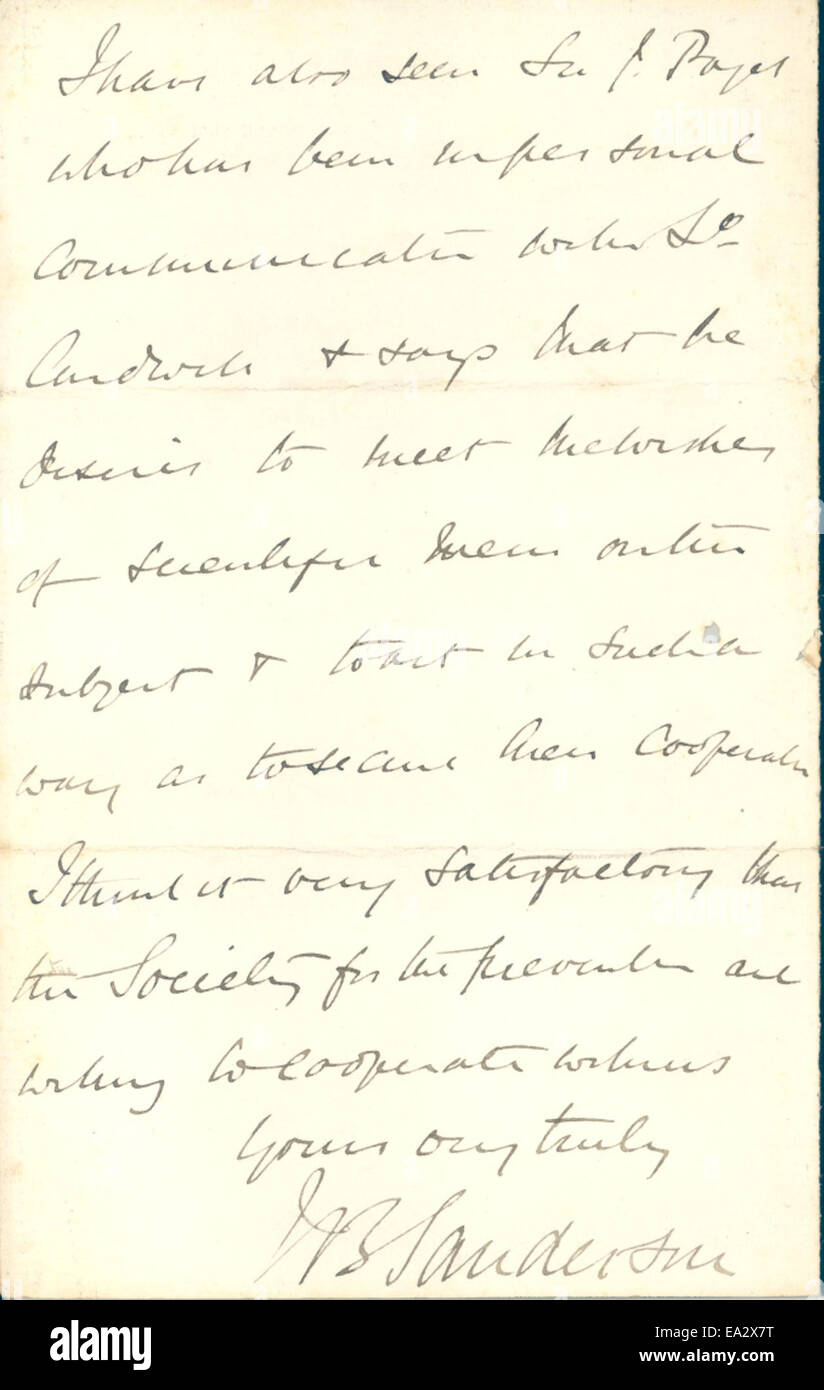 I have also seen Sir J. Paget
who has been in personal
communication with Ld
Cardwell & says that he
desires to meet the wishes
of scientific men on this
subject & to act in such a
way as to secure their cooperation
I think it very satisfactory that
the Society for the prevention are
willing to cooperate with us
Yours very truly
J B Sanderson
alamy
alamy
Image ID: EA2X7T
www.alamy.com